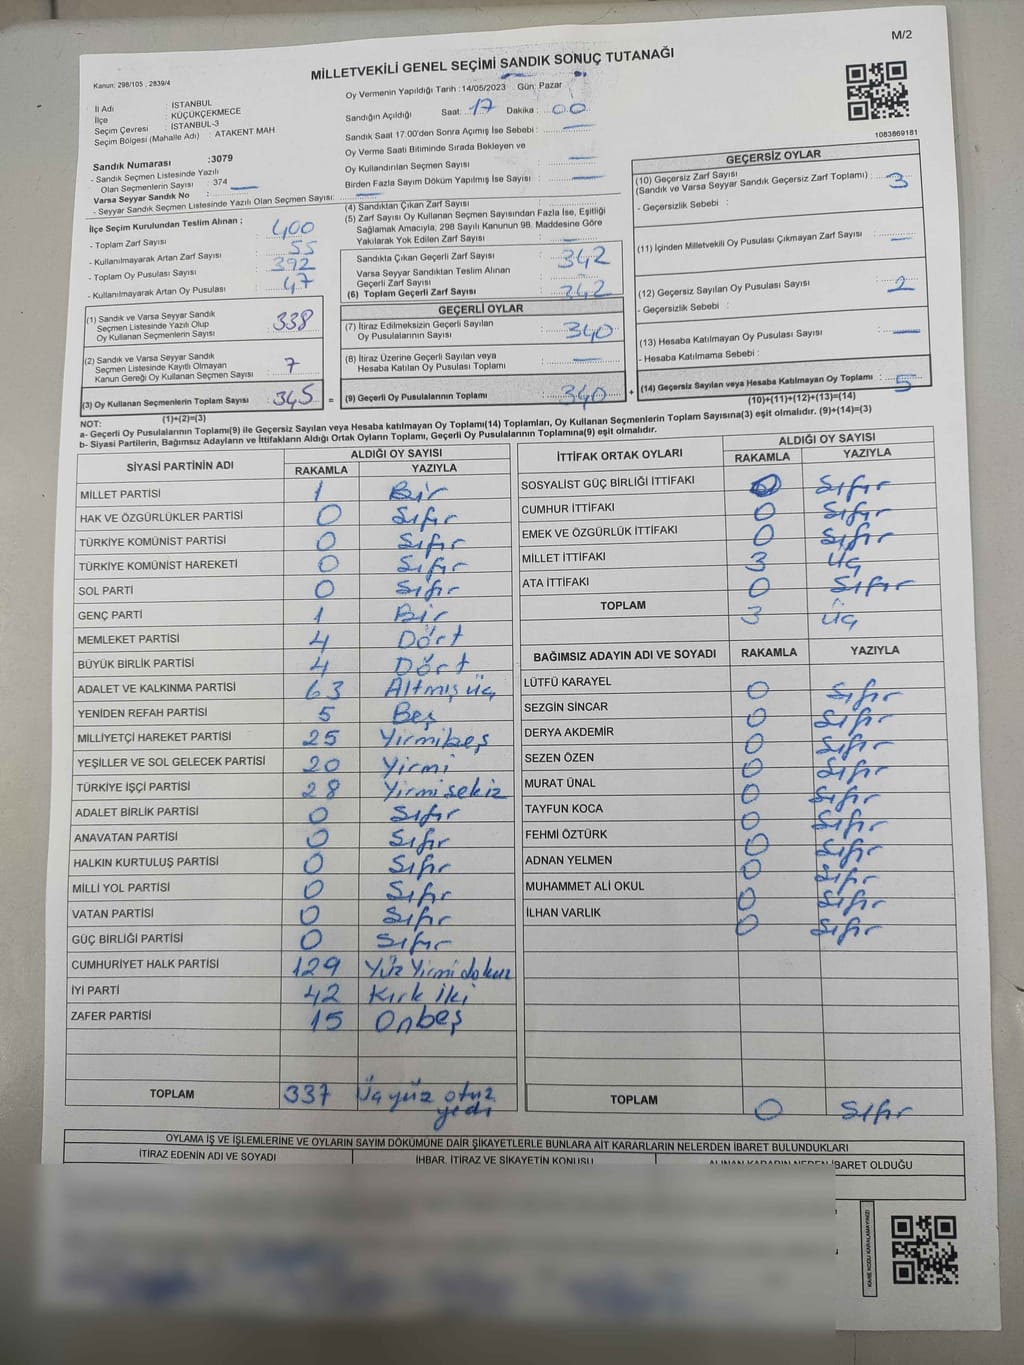 M/2
MİLLETVEKİLİ GENEL SEÇİMİ SANDIK SONUÇ TUTANAĞI
Kanun: 298/105 , 2839/4
İl Adı : İSTANBUL
İlçe : KÜÇÜKÇEKMECE
Seçim Çevresi : İSTANBUL-3
Seçim Bölgesi (Mahalle Adı) : ATAKENT MAH.
Sandık Numarası :3079
- Sandık Seçmen Listesinde Yazılı
Olan Seçmenlerin Sayısı : 374
Varsa Seyyar Sandık No :
- Seyyar Sandık Seçmen Listesinde Yazılı Olan Seçmen Sayısı:
Oy Vermenin Yapıldığı Tarih : 14/05/2023 Gün: Pazar
Sandığın Açıldığı Saat: 17 Dakika : 00
Sandık Saat 17:00'den Sonra Açılmış İse Sebebi : —
Oy Verme Saati Bitiminde Sırada Bekleyen ve
Oy Kullandırılan Seçmen Sayısı : —
Birden Fazla Sayım Döküm Yapılmış İse Sayısı : —
1083669181
İlçe Seçim Kurulundan Teslim Alınan ;
- Toplam Zarf Sayısı : 400
- Kullanılmayarak Artan Zarf Sayısı : 55
- Toplam Oy Pusulası Sayısı : 392
- Kullanılmayarak Artan Oy Pusulası : 47
(1) Sandık ve Varsa Seyyar Sandık
Seçmen Listesinde Yazılı Olup
Oy Kullanan Seçmenlerin Sayısı : 338
(2) Sandık ve Varsa Seyyar Sandık
Seçmen Listesinde Kayıtlı Olmayan
Kanun Gereği Oy Kullanan Seçmen Sayısı : 7
(3) Oy Kullanan Seçmenlerin Toplam Sayısı : 345 =
(1)+(2)=(3)
(4) Sandıktan Çıkan Zarf Sayısı :
(5) Zarf Sayısı Oy Kullanan Seçmen Sayısından Fazla İse, Eşitliği
Sağlamak Amacıyla, 298 Sayılı Kanunun 98. Maddesine Göre
Yakılarak Yok Edilen Zarf Sayısı : —
Sandıkta Çıkan Geçerli Zarf Sayısı : 342
Varsa Seyyar Sandıktan Teslim Alınan
Geçerli Zarf Sayısı :
(6) Toplam Geçerli Zarf Sayısı : 342
GEÇERLİ OYLAR
(7) İtiraz Edilmeksizin Geçerli Sayılan
Oy Pusulalarının Sayısı : 340
(8) İtiraz Üzerine Geçerli Sayılan veya
Hesaba Katılan Oy Pusulası Toplamı : —
(9) Geçerli Oy Pusulalarının Toplamı : 340 +
GEÇERSİZ OYLAR
(10) Geçersiz Zarf Sayısı
(Sandık ve Varsa Seyyar Sandık Geçersiz Zarf Toplamı) : 3
- Geçersizlik Sebebi :
(11) İçinden Milletvekili Oy Pusulası Çıkmayan Zarf Sayısı : —
(12) Geçersiz Sayılan Oy Pusulası Sayısı : 2
- Geçersizlik Sebebi :
(13) Hesaba Katılmayan Oy Pusulası Sayısı : —
- Hesaba Katılmama Sebebi :
(14) Geçersiz Sayılan veya Hesaba Katılmayan Oy Toplamı : 5
(10)+(11)+(12)+(13)=(14)
NOT:
a- Geçerli Oy Pusulalarının Toplamı(9) ile Geçersiz Sayılan veya Hesaba katılmayan Oy Toplamı(14) Toplamları, Oy Kullanan Seçmenlerin Toplam Sayısına(3) eşit olmalıdır. (9)+(14)=(3)
b- Siyasi Partilerin, Bağımsız Adayların ve İttifakların Aldığı Ortak Oyların Toplamı, Geçerli Oy Pusulalarının Toplamına(9) eşit olmalıdır.
SİYASİ PARTİNİN ADI ALDIĞI OY SAYISI
RAKAMLA YAZIYLA
MİLLET PARTİSİ 1 Bir
HAK VE ÖZGÜRLÜKLER PARTİSİ 0 Sıfır
TÜRKİYE KOMÜNİST PARTİSİ 0 Sıfır
TÜRKİYE KOMÜNİST HAREKETİ 0 Sıfır
SOL PARTİ 0 Sıfır
GENÇ PARTİ 1 Bir
MEMLEKET PARTİSİ 4 Dört
BÜYÜK BİRLİK PARTİSİ 4 Dört
ADALET VE KALKINMA PARTİSİ 63 Altmış üç
YENİDEN REFAH PARTİSİ 5 Beş
MİLLİYETÇİ HAREKET PARTİSİ 25 Yirmibeş
YEŞİLLER VE SOL GELECEK PARTİSİ 20 Yirmi
TÜRKİYE İŞÇİ PARTİSİ 28 Yirmi sekiz
ADALET BİRLİK PARTİSİ 0 Sıfır
ANAVATAN PARTİSİ 0 Sıfır
HALKIN KURTULUŞ PARTİSİ 0 Sıfır
MİLLİ YOL PARTİSİ 0 Sıfır
VATAN PARTİSİ 0 Sıfır
GÜÇ BİRLİĞİ PARTİSİ 0 Sıfır
CUMHURİYET HALK PARTİSİ 129 Yüz Yirmi dokuz
İYİ PARTİ 42 Kırk İki
ZAFER PARTİSİ 15 Onbeş
TOPLAM 337 Üçyüz otuz
yedi
İTTİFAK ORTAK OYLARI ALDIĞI OY SAYISI
RAKAMLA YAZIYLA
SOSYALİST GÜÇ BİRLİĞİ İTTİFAKI 0 Sıfır
CUMHUR İTTİFAKI 0 Sıfır
EMEK VE ÖZGÜRLÜK İTTİFAKI 0 Sıfır
MİLLET İTTİFAKI 3 Üç
ATA İTTİFAKI 0 Sıfır
TOPLAM 3 Üç
BAĞIMSIZ ADAYIN ADI VE SOYADI RAKAMLA YAZIYLA
LÜTFÜ KARAYEL 0 Sıfır
SEZGİN SİNCAR 0 Sıfır
DERYA AKDEMİR 0 Sıfır
SEZEN ÖZEN 0 Sıfır
MURAT ÜNAL 0 Sıfır
TAYFUN KOCA 0 Sıfır
FEHMİ ÖZTÜRK 0 Sıfır
ADNAN YELMEN 0 Sıfır
MUHAMMET ALİ OKUL 0 Sıfır
İLHAN VARLIK 0 Sıfır
TOPLAM 0 Sıfır
OYLAMA İŞ VE İŞLEMLERİNE VE OYLARIN SAYIM DÖKÜMÜNE DAİR ŞİKAYETLERLE BUNLARA AİT KARARLARIN NELERDEN İBARET BULUNDUKLARI
İTİRAZ EDENİN ADI VE SOYADI İHBAR, İTİRAZ VE ŞİKAYETİN KONUSU ALINAN KARARIN NEDEN İBARET OLDUĞU
KARE KODU KARALAMAYINIZ!